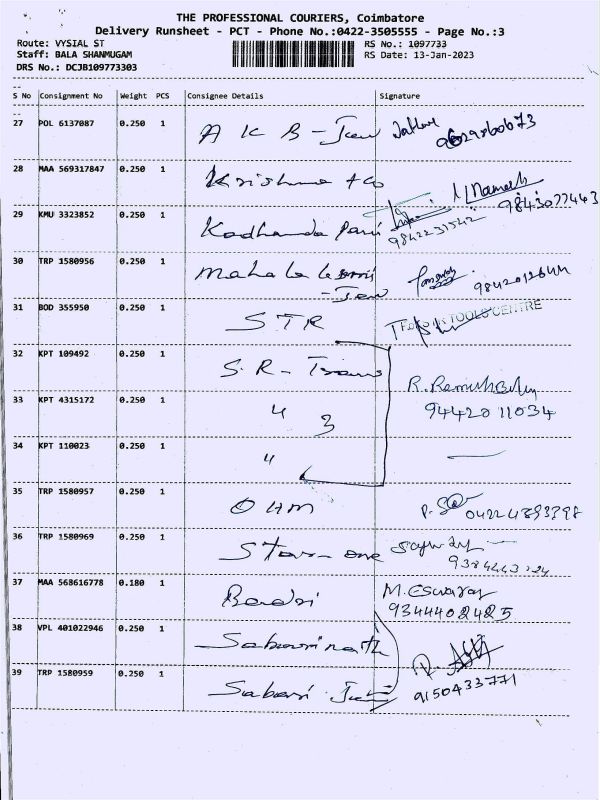 THE PROFESSIONAL COURIERS, Coimbatore
Delivery Runsheet - PCT - Phone No.:0422-3505555 - Page No.:3
Route: VYSIAL ST RS No.: 1097733
Staff: BALA SHANMUGAM RS Date: 13-Jan-2023
DRS No.: DCJB109773303
S No Consignment No Weight PCS Consignee Details Signature
27 POL 6137087 0.250 1 A K S - Jew
28 MAA 569317847 0.250 1 Krishna + Co 9843077463
29 KMU 3323852 0.250 1 Kadhamba Pari 9842231542
30 TRP 1580956 0.250 1 Maha La
- Jew
31 BOD 355950 0.250 1 STR TOOLS CENTRE
32 KPT 109492 0.250 1 S.R - Trans
33 KPT 4315172 0.250 1 " 3 9442011034
34 KPT 110023 0.250 1 "
35 TRP 1580957 0.250 1 OHM
36 TRP 1580969 0.250 1 Star - one
37 MAA 568616778 0.180 1 Badri M. Eswaran
9344402425
38 VPL 401022946 0.250 1 Sabarinath
39 TRP 1580959 0.250 1 Sabari Jew 9150433771